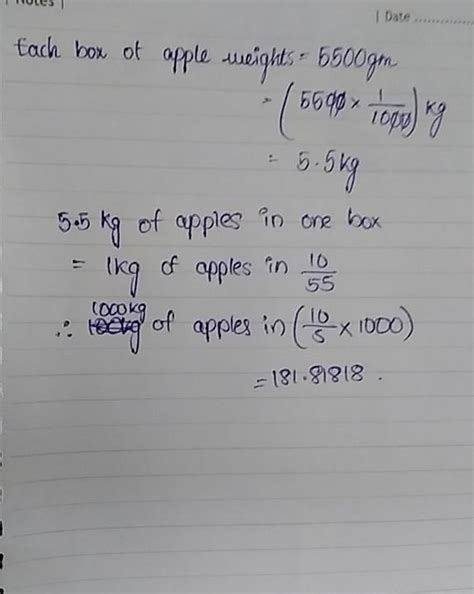 | Notes |
| Date ..............
Each box of apple weights = 5500gm
= (5500 × 1/1000) kg
= 5.5kg
5.5 kg of apples in one box
= 1kg of apples in 10/55
1000kg
∴ of apples in (10/5 × 1000)
= 181.81818 .